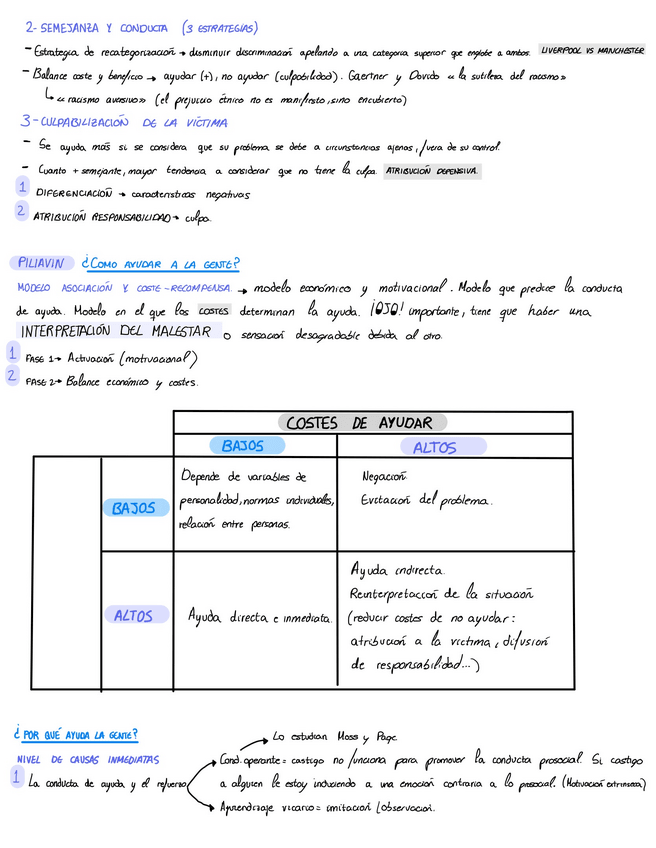 2- SEMEJANZA Y CONDUCTA (3 ESTRATEGIAS)
- Estrategia de recategorización → disminuir discriminación apelando a una categoria superior que englobe a ambos. LIVERPOOL VS MANCHESTER
- Balance coste y beneficio → ayudar (+), no ayudar (culpabilidad). Gaertner y Dovido "la sutileza del racismo"
↳ "racismo aversivo" (el prejuicio étnico no es manifiesto, sino encubierto)
3- CULPABILIZACIÓN DE LA VÍCTIMA
- Se ayuda más si se considera que su problema se debe a circunstancias ajenas, fuera de su control.
- Cuanto + semejante, mayor tendencia a considerar que no tiene la culpa. ATRIBUCIÓN DEFENSIVA.
1 DIFERENCIACIÓN → características negativas
2 ATRIBUCIÓN RESPONSABILIDAD → culpa.
PILIAVIN ¿COMO AYUDAR A LA GENTE?
MODELO ASOCIACIÓN Y COSTE-RECOMPENSA. → modelo económico y motivacional. Modelo que predice la conducta
de ayuda. Modelo en el que los COSTES determinan la ayuda. ¡OJO! importante, tiene que haber una
INTERPRETACIÓN DEL MALESTAR o sensación desagradable debida al otro.
1 FASE 1 → Activación (motivacional)
2 FASE 2 → Balance económico y costes.
COSTES DE AYUDAR
BAJOS ALTOS
BAJOS
Depende de variables de
personalidad, normas individuales,
relación entre personas.
Negación
Evitación del problema.
ALTOS
Ayuda directa e inmediata.
Ayuda indirecta.
Reinterpretación de la situación
(reducir costes de no ayudar:
atribución a la víctima, difusión
de responsabilidad...)
¿POR QUÉ AYUDA LA GENTE?
→ Lo estudian Moss y Page
NIVEL DE CAUSAS INMEDIATAS
Cond. operante = castigo no funciona para promover la conducta prosocial. Si castigo
1 La conducta de ayuda y el refuerzo
a alguien le estoy induciendo a una emoción contraria a lo prosocial. (Motivación extrínseca)
Aprendizaje vicario = imitación / observación.